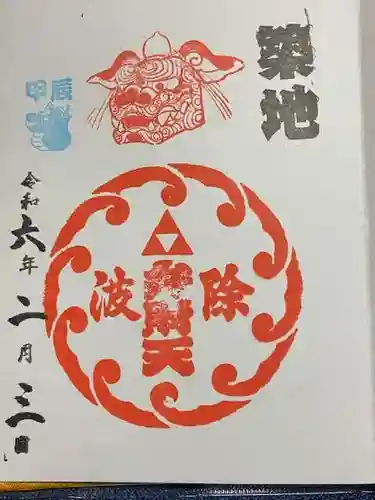 築地
除波
弁財天
甲辰
令和六年二月三日